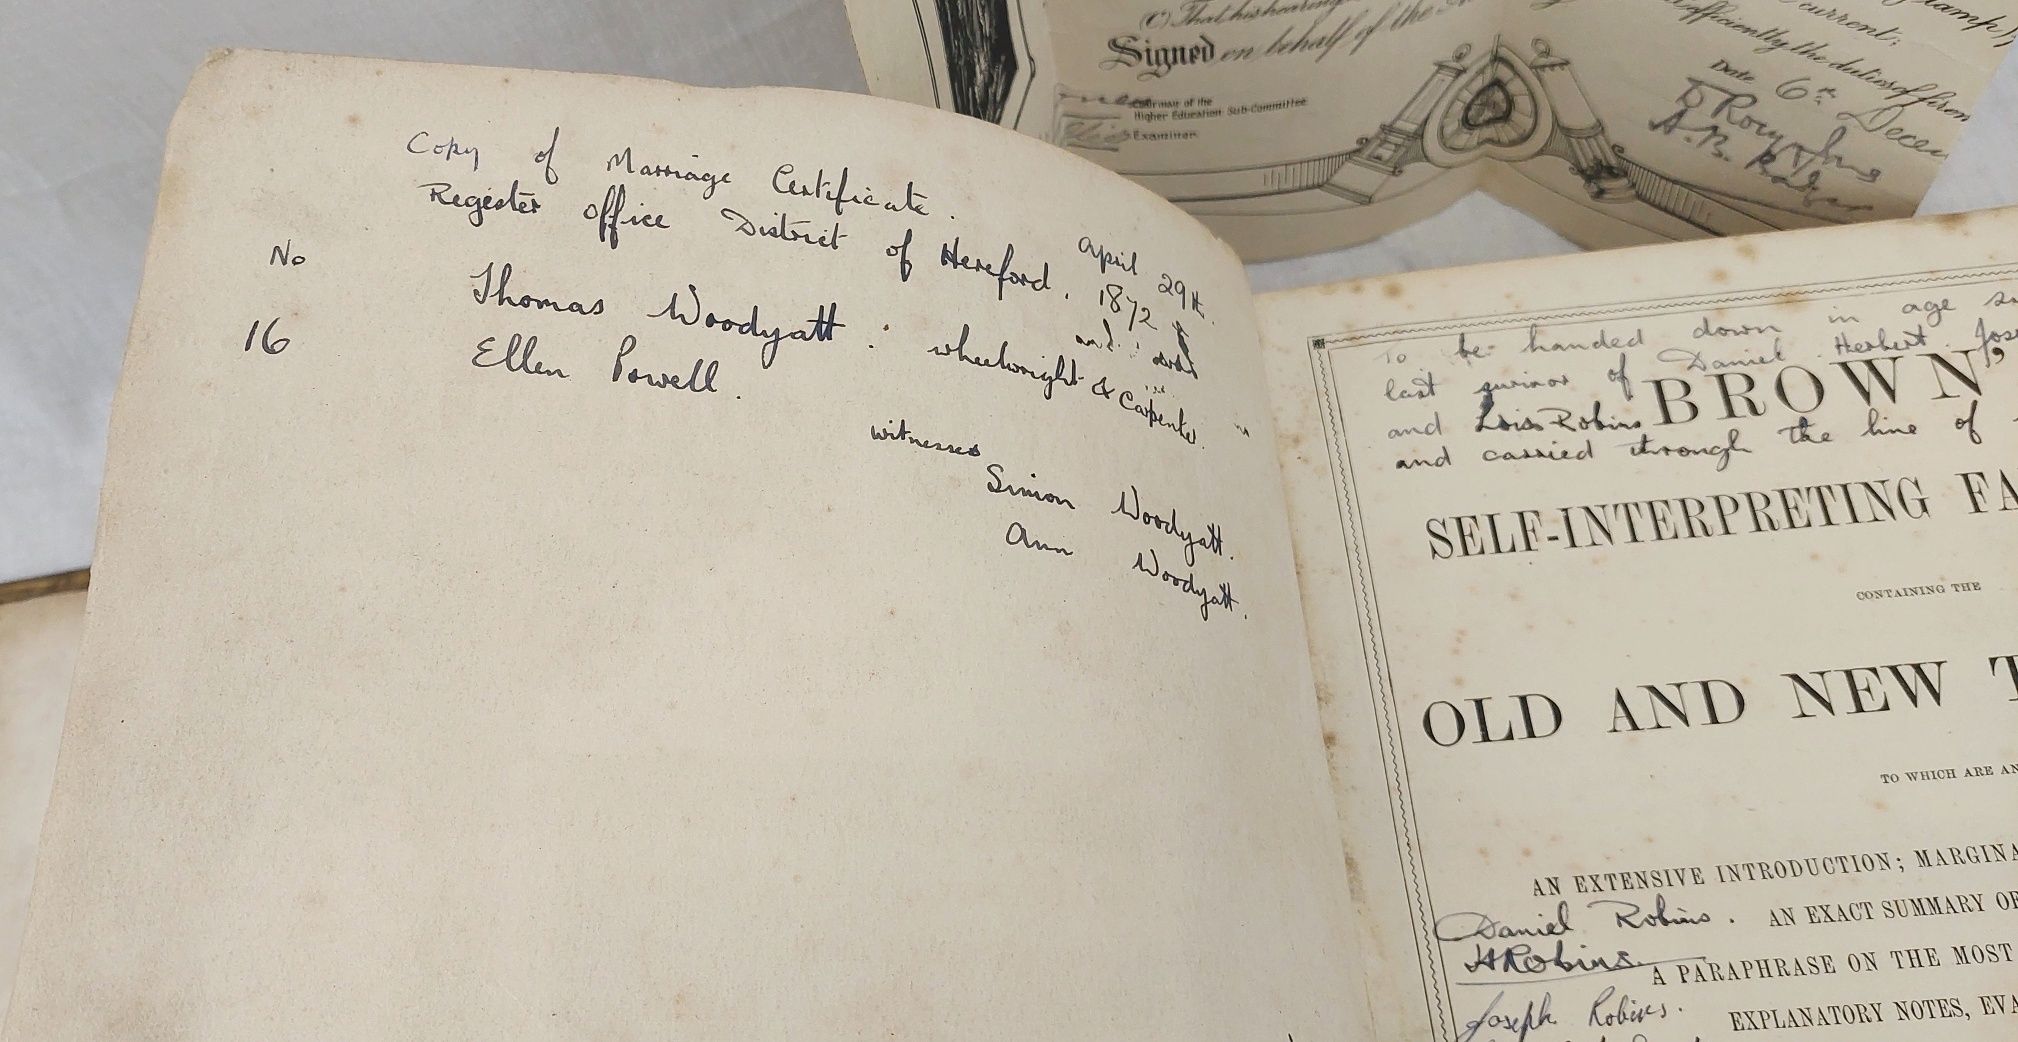 Copy of Marriage Certificate.
Register Office District of Hereford. April 29th.
1872
No
16
Thomas Woodyatt : wheelwright & Carpenter.
and
Ellen Powell.
witnesses
Simion Woodyatt.
Ann Woodyatt.
(C) That his hearing
current;
Signed on behalf of the
sufficiently the duties of
Chairman of the
Higher Education Sub-Committee
Examiner.
Date 6th Decem
A.B.
To be handed down in age
last survivor of Daniel Herbert
and Lois Robins
and carried through the line of
BROWN'
SELF-INTERPRETING FA
CONTAINING THE
OLD AND NEW T
TO WHICH ARE AN
AN EXTENSIVE INTRODUCTION; MARGINA
Daniel Robins. AN EXACT SUMMARY OF
H Robins. A PARAPHRASE ON THE MOST
Joseph Robins. EXPLANATORY NOTES, EVA